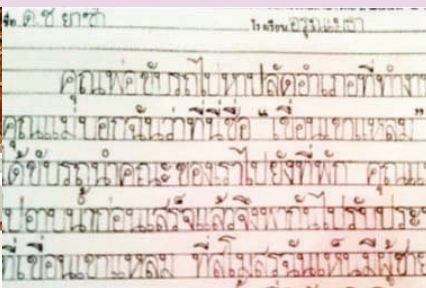 ชื่อ ด.ช ยาซา โรงเรียน
คุณพ่อขับรถไปหาปลัดอำเภอที่ทำงา
คุณแม่บอกฉันว่าที่นี่ชื่อ “เขื่อนเขาแหลม”
ได้ขับรถนำคณะของเราไปยังที่พัก คุณแ
ปอาบน้ำก่อนเสร็จแล้วจึงพากันไปรับประท
ที่เขื่อนเขาแหลม ที่สโมสรฉันเห็นมีผู้ชาย